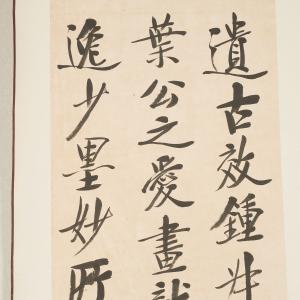 遺古效鍾
葉公之愛畫龍
逸少墨妙所